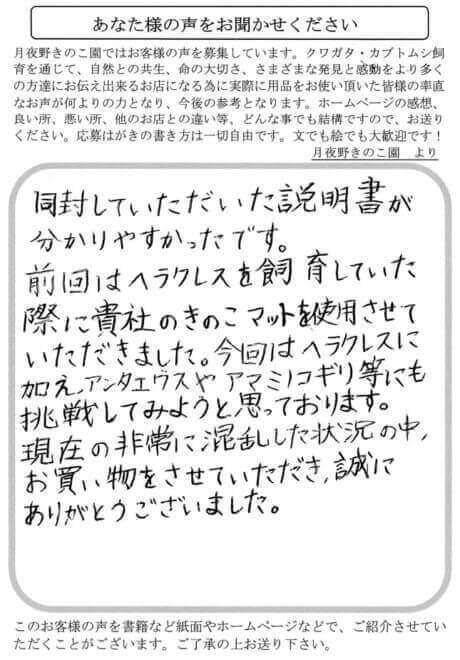 あなた様の声をお聞かせください
月夜野きのこ園ではお客様の声を募集しています。クワガタ・カブトムシ飼
育を通じて、自然との共生、命の大切さ、さまざまな発見と感動をより多く
の方達にお伝え出来るお店になる為に実際に用品をお使い頂いた皆様の率直
なお声が何よりの力となり、今後の参考となります。ホームページの感想、
良い所、悪い所、他のお店との違い等、どんな事でも結構ですので、お送り
ください。応募はがきの書き方は一切自由です。文でも絵でも大歓迎です！
月夜野きのこ園　より
同封していただいた説明書が
分かりやすかったです。
前回はヘラクレスを飼育していた
際に貴社のきのこマットを使用させて
いただきました。今回はヘラクレスに
加え、アンタエウスやアマミノコギリ等にも
挑戦してみようと思っております。
現在の非常に混乱した状況の中、
お買い物をさせていただき、誠に
ありがとうございました。
このお客様の声を書籍など紙面やホームページなどで、ご紹介させてい
ただくことがございます。ご了承の上お送り下さい。